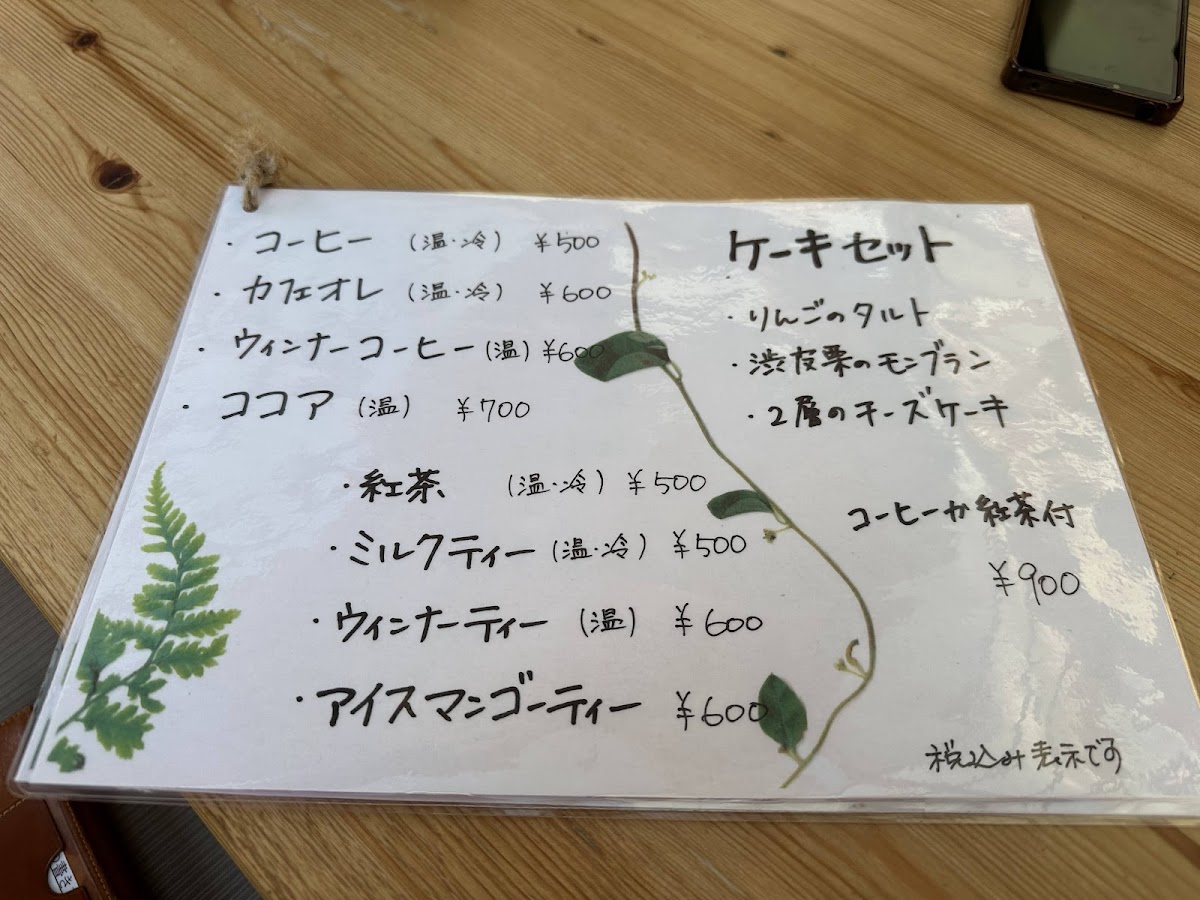 ・コーヒー (温・冷) ¥500
・カフェオレ (温・冷) ¥600
・ウィンナーコーヒー (温) ¥600
・ココア (温) ¥700
・紅茶 (温・冷) ¥500
・ミルクティー (温・冷) ¥500
・ウィンナーティー (温) ¥600
・アイスマンゴーティー ¥600
ケーキセット
・りんごのタルト
・渋皮栗のモンブラン
・2層のチーズケーキ
コーヒーか紅茶付
¥900
税込み表示です